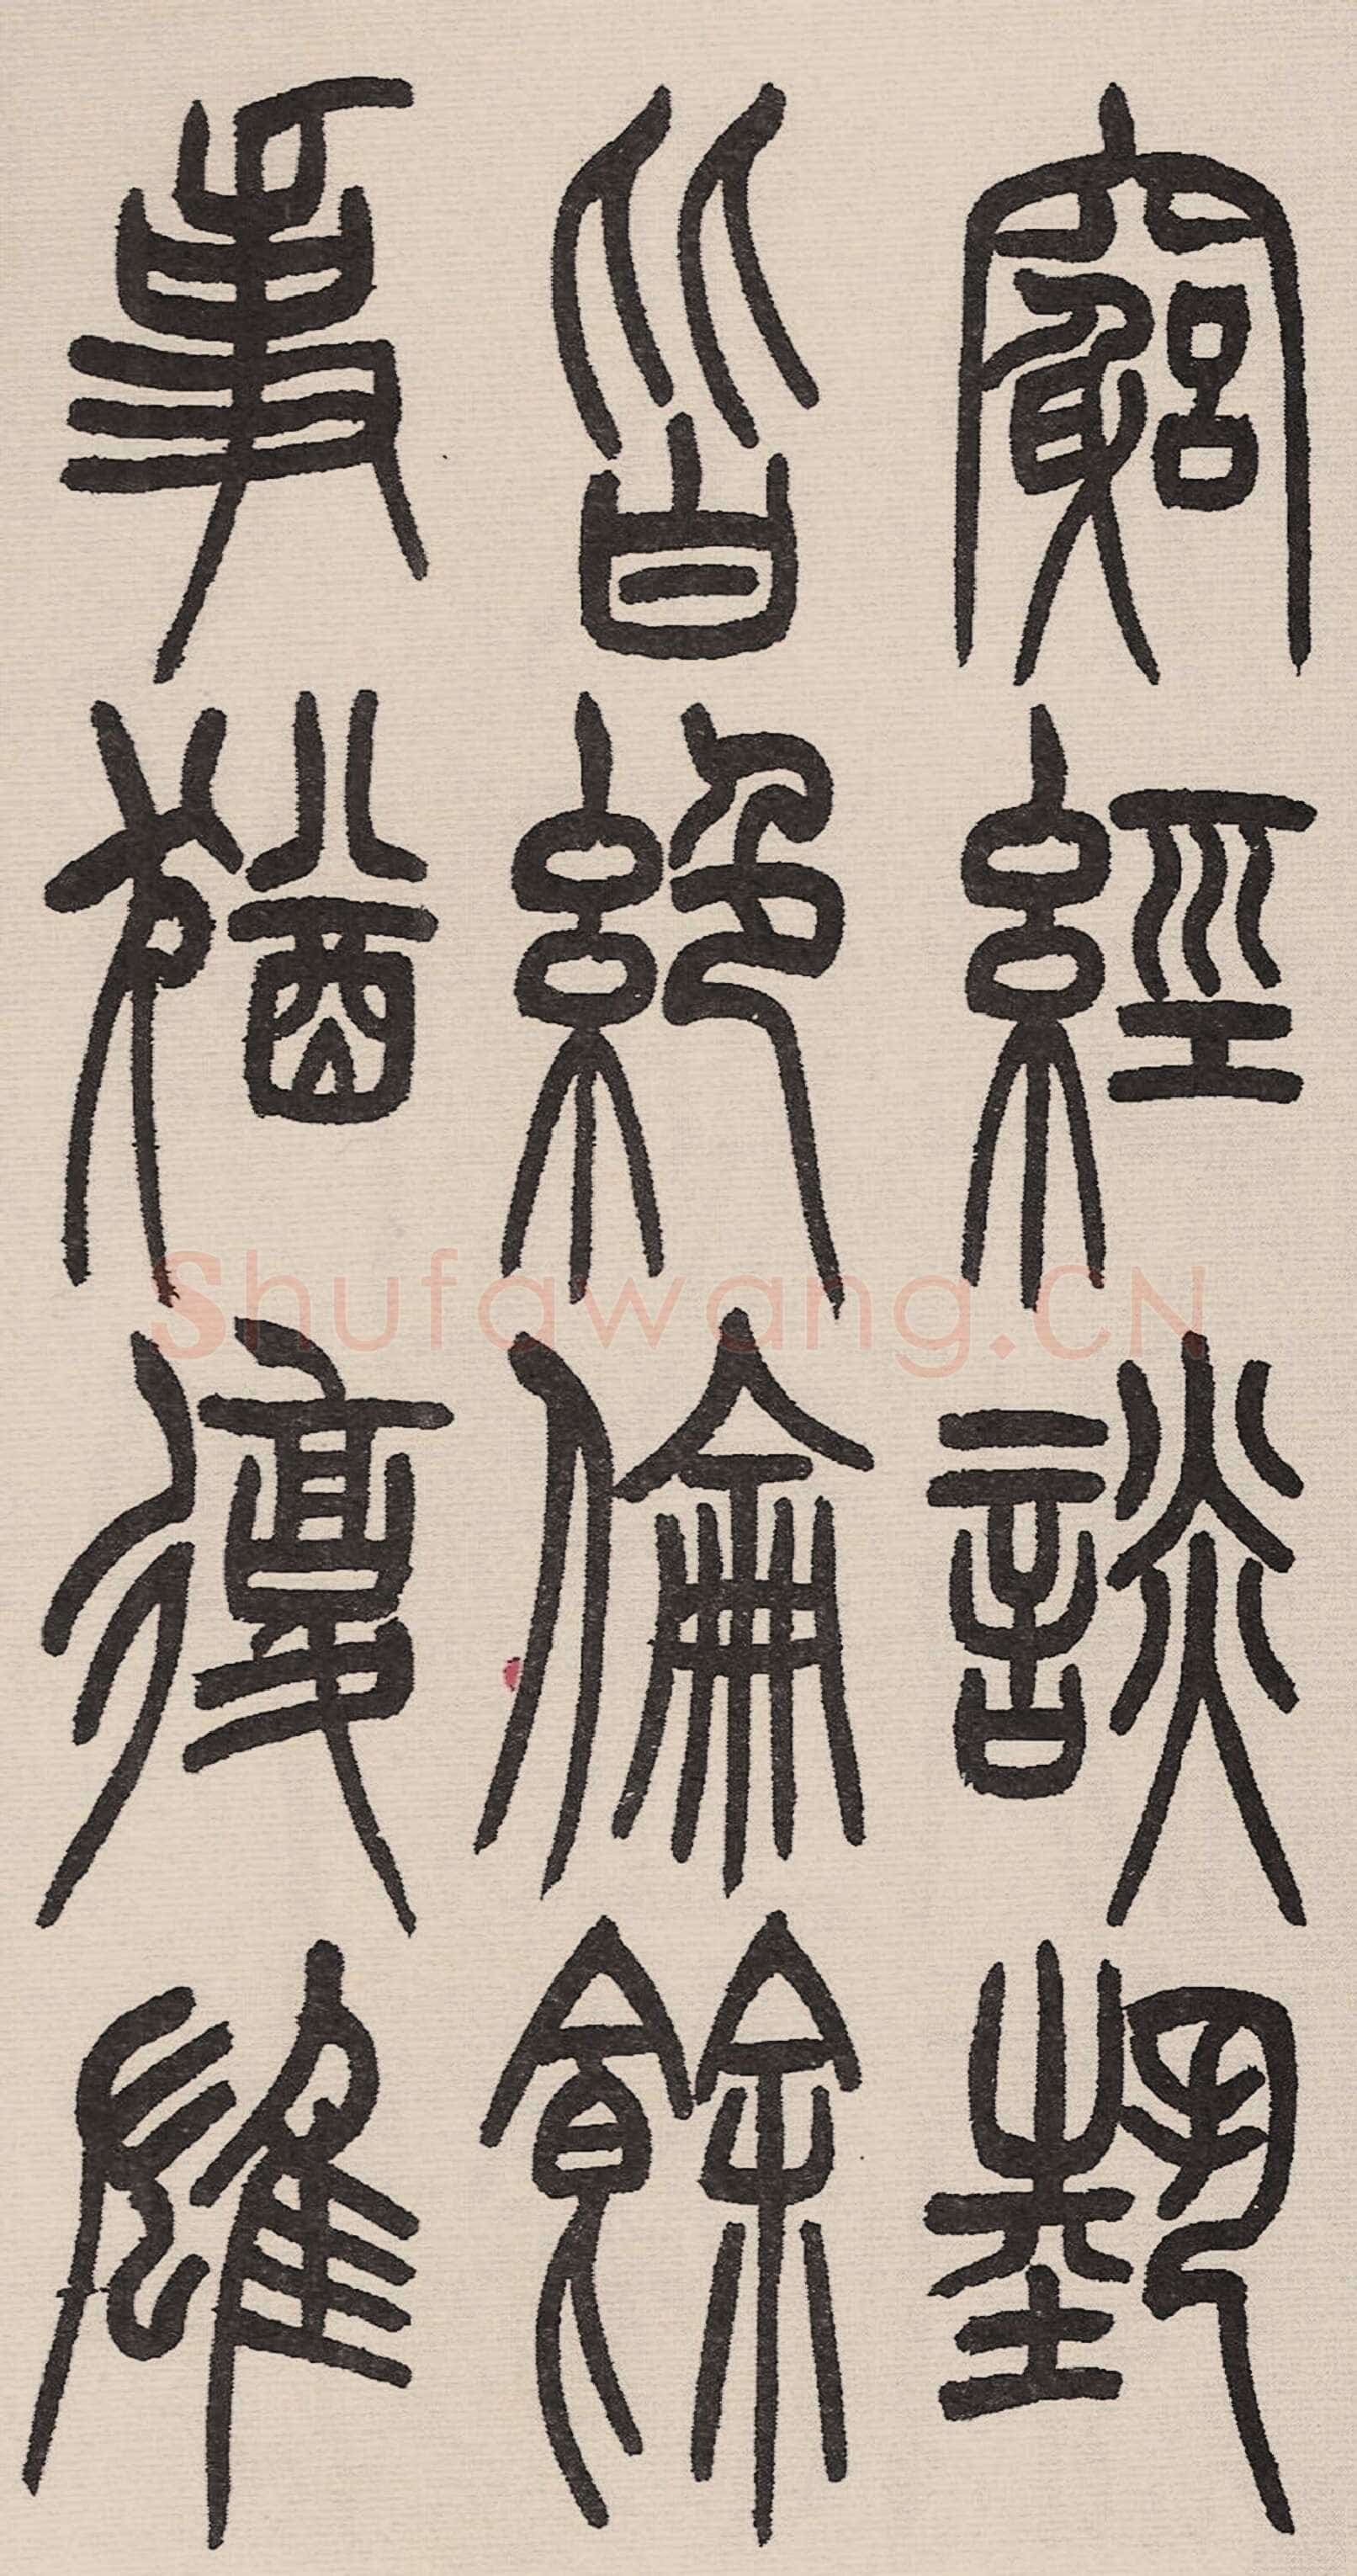 窮經談埶
皆絕倫餘
事猶復雄
Shufawang.CN